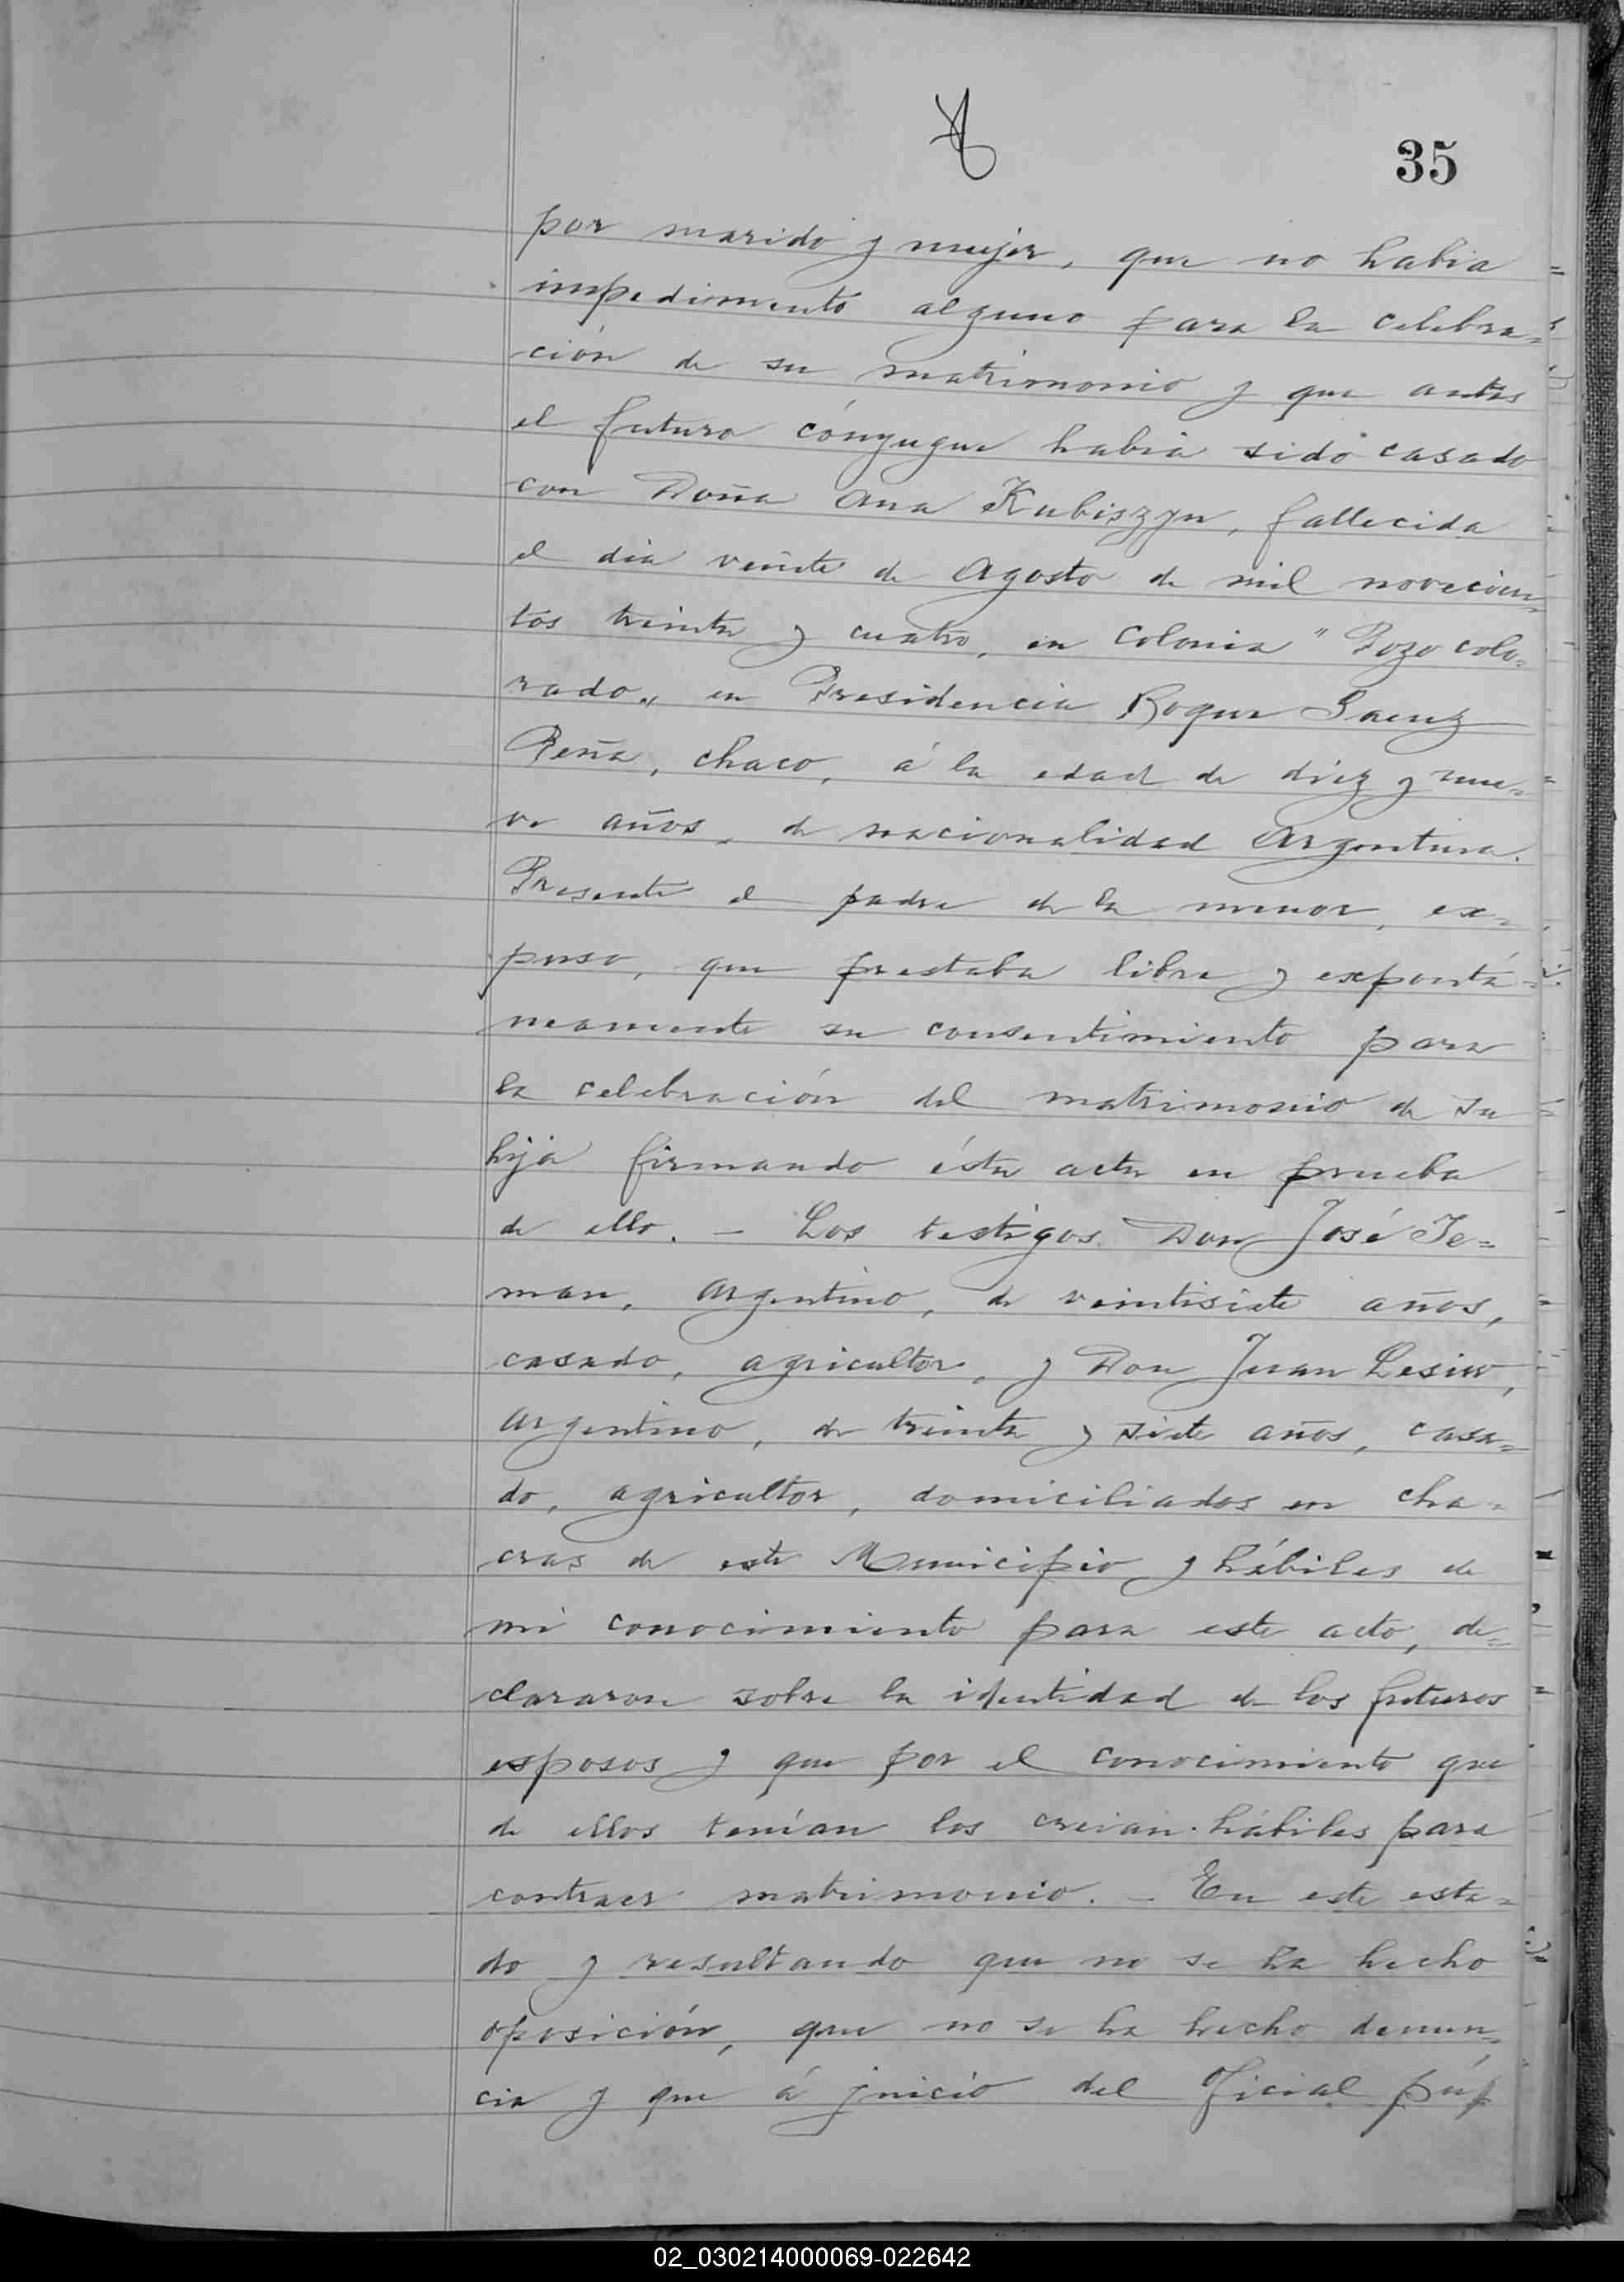 35
por marido y mujer, que no habia
impedimento alguno para la celebra=
ción de su matrimonio y que antes
el futuro cónyugue habia sido casado
con Doña Ana Kubiszyn, fallecida
el dia veinte de Agosto de mil novecien=
tos treinta y cuatro, en Colonia "Pozo colo=
rado„ en Presidencia Roque Saenz
Peña, chaco, á la edad de diez y nue=
ve años, de nacionalidad Argentina.
Presente el padre de la menor, ex=
puso, que prestaba libre y expontá=
neamente su consentimiento para
la celebración del matrimonio de su
hija firmando ésta acta en prueba
de ello. — Los testigos Don José Te=
man, Argentino, de veintisiete años,
casado, agricultor, y Don Juan Lesiw,
Argentino, de treinta y siete años, casa=
do, agricultor, domiciliados en cha=
cras de este Municipio y hábiles de
mi conocimiento para este acto, de=
clararon sobre la identidad de los futuros
esposos y que por el conocimiento que
de ellos tenían los creian hábiles para
contraer matrimonio. — En este esta=
do y resultando que no se ha hecho
oposición, que no se ha hecho denun=
cia y que á juicio del Oficial pú
02_030214000069-022642